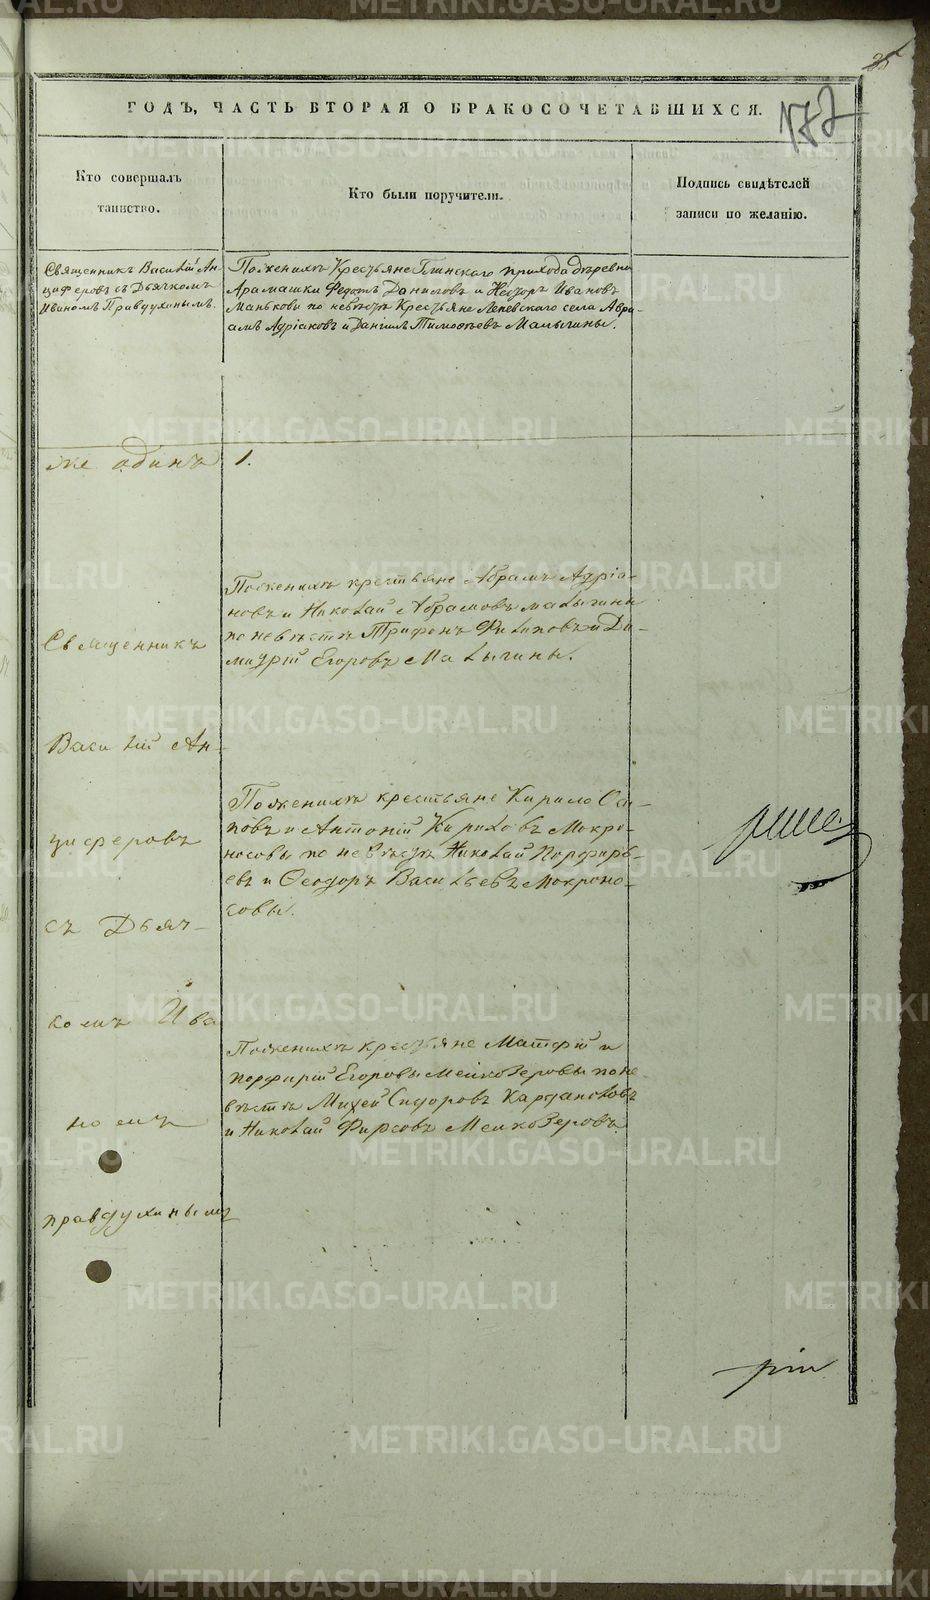 25
ГОДЪ, ЧАСТЬ ВТОРАЯ О БРАКОСОЧЕТАВШИХСЯ.
177
Кто совершалъ
таинство.
Кто были поручители.
Подпись свидѣтелей
записи по желанію.
Священникъ Василій Ан-
циферовъ съ Дьячкомъ
Иваномъ Правдухинымъ.
По женихѣ Крестьяне Глинскаго прихода деревни
Арамашки Федотъ Даниловъ и Несторъ Ивановъ
Маньковы по невѣстѣ Крестьяне Леневскаго села Авра-
амъ Адріановъ и Даніилъ Тимофеевъ Малыгины.
же одинъ 1.
Священникъ
Василій Ан-
циферовъ
съ Дьяч-
комъ Ива
номъ
правдухинымъ
По женихѣ крестьяне Абрамъ Адріа-
новъ и Николай Абрамовъ малыгины
по невѣстѣ Трифонъ Филиповъ и Ди-
митрій Егоровъ Малыгины.
По женихѣ крестьяне Кирило Оси-
повъ и Антоній Кириловъ Мокро-
носовы по невѣстѣ Николай Порфирь-
евъ и Ѳеодоръ Васильевъ Мокроно-
совы.
По женихѣ крестьяне Матфій и
порфирій Егоровы Мелкозеровы по не-
вѣстѣ Михей Сидоровъ
и Николай Фирсовъ Мелкозеровъ.
METRIKI.GASO-URAL.RU